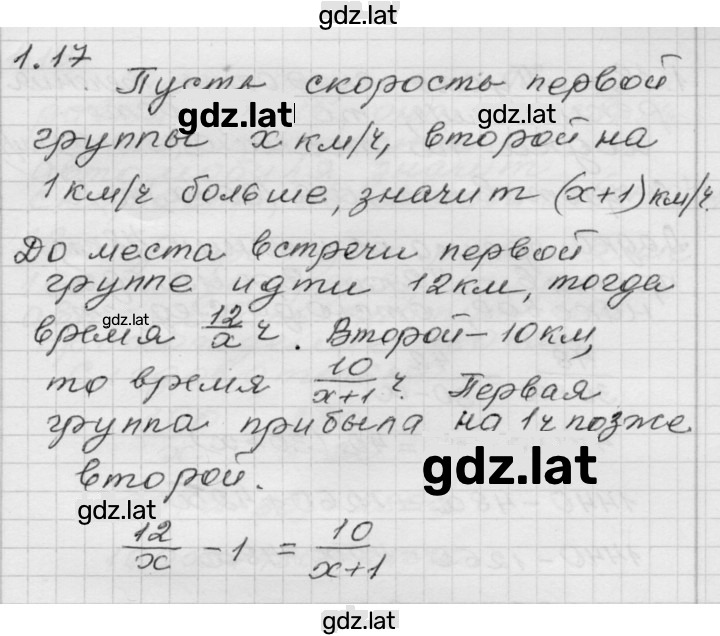 gdz.lat
1.17
Пусть скорость первой
gdz.lat gdz.lat
группы x км/ч, второй на
1 км/ч больше, значит (x+1) км/ч.
До места встречи первой
группе идти 12 км, тогда
gdz.lat
время 12/x ч. Второй – 10 км,
то время 10/x+1 ч. Первая
группа прибыла на 1 ч позже
gdz.lat
второй.
gdz.lat
12/x - 1 = 10/x+1
gdz.lat